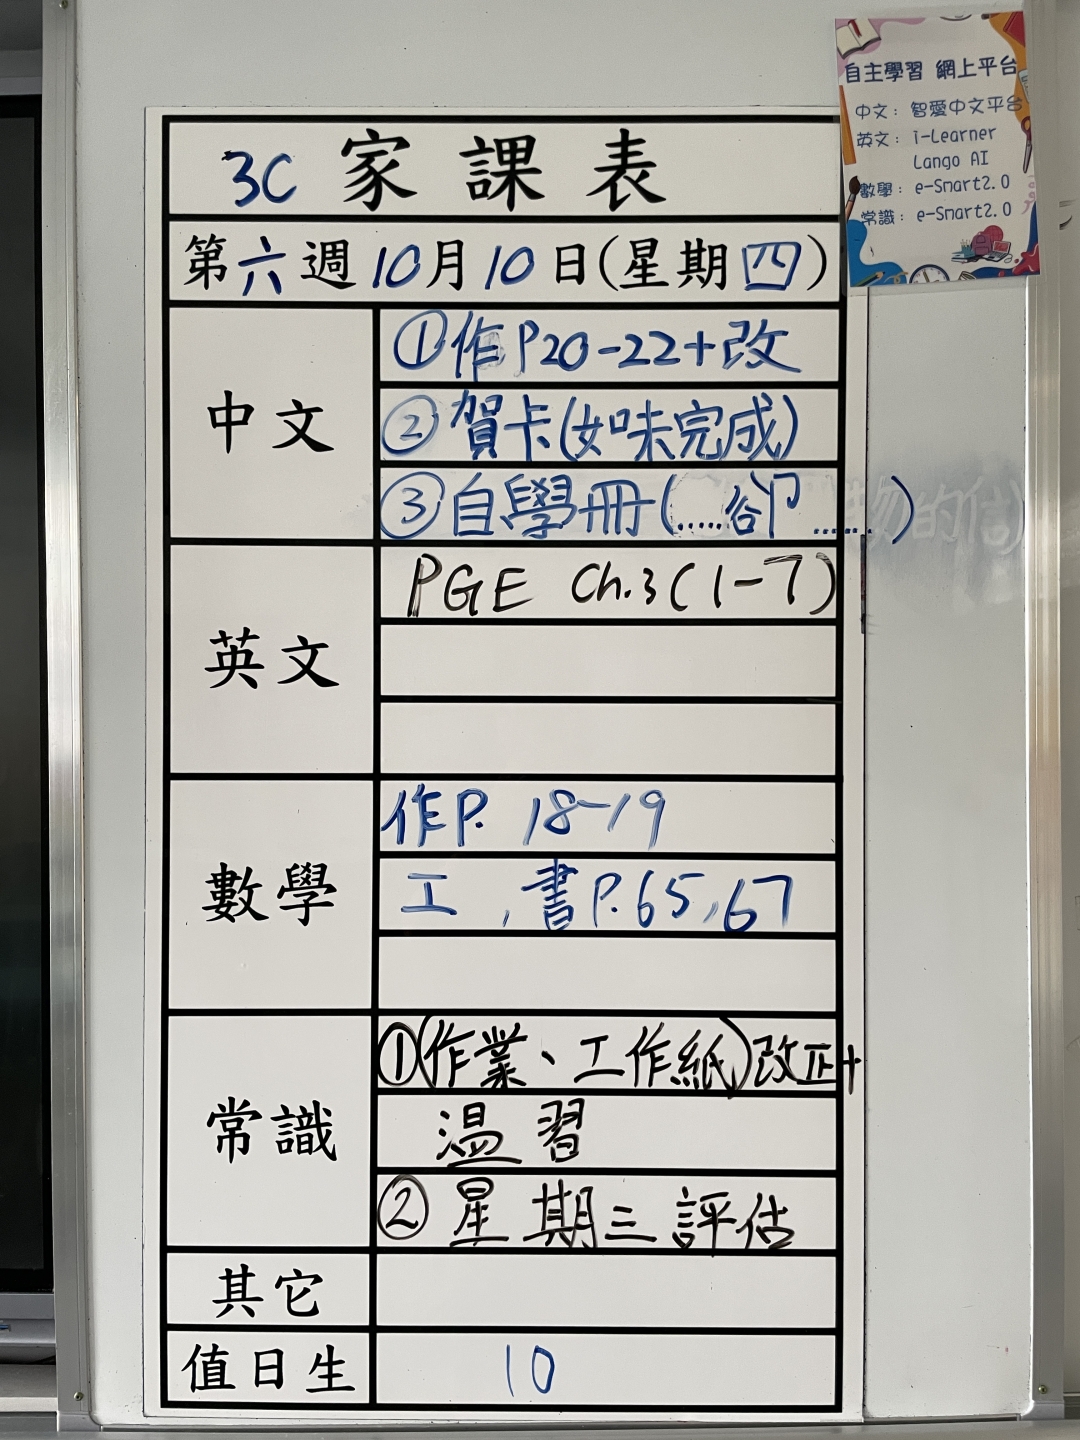 自主學習 網上平台
中文：智愛中文平台
英文：i-Learner
Lango AI
數學：e-Smart2.0
常識：e-Smart2.0
3C 家課表
第六週10月10日(星期四)
中文
①作P20-22+改
②賀卡(如味完成)
③自學冊(……卻……)
英文
PGE Ch.3(1-7)
數學
作P. 18-19
工,書P.65,67
常識
①(作業、工作紙)改正+
温習
②星期三評估
其它
值日生
10